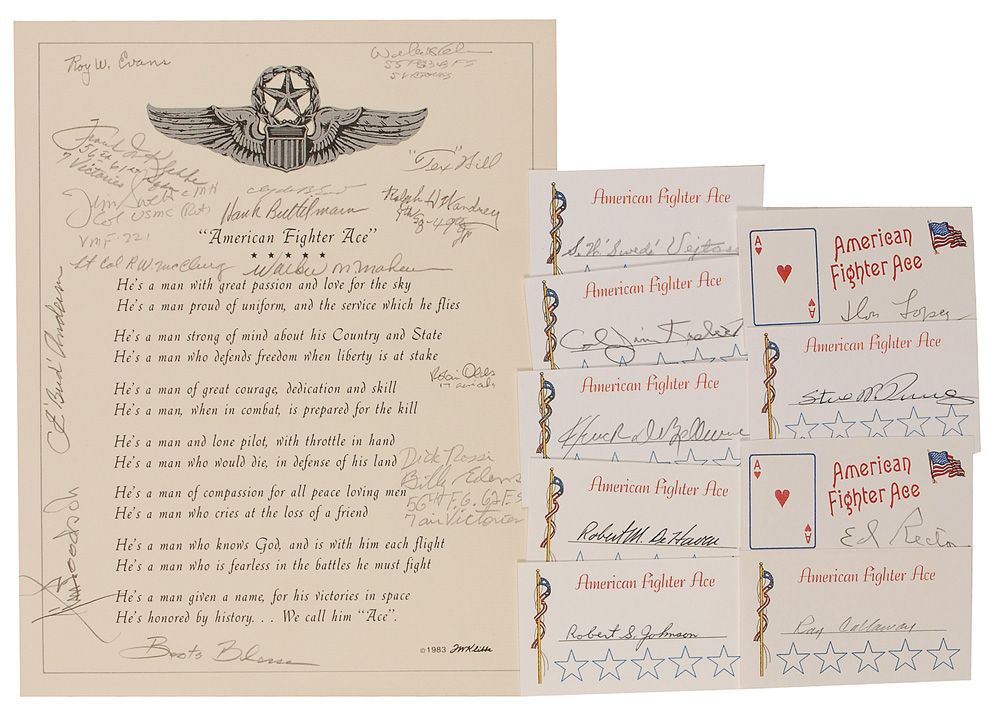 Roy W. Evans
"Tex" Hill
7 Victories
Hank Buttelmann
VMF-221
"American Fighter Ace"
Lt Col R W McClurg
He's a man with great passion and love for the sky
He's a man proud of uniform, and the service which he flies
He's a man strong of mind about his Country and State
He's a man who defends freedom when liberty is at stake
Robin Olds
He's a man of great courage, dedication and skill
He's a man, when in combat, is prepared for the kill
He's a man and lone pilot, with throttle in hand
He's a man who would die, in defense of his land
Dick Rossi
Billy Edens
56th F.G. 62 F.S
7 air Victories
He's a man of compassion for all peace loving men
He's a man who cries at the loss of a friend
He's a man who knows God, and is with him each flight
He's a man who is fearless in the battles he must fight
He's a man given a name, for his victories in space
He's honored by history. . . We call him "Ace".
Boots Blesse
©1983
Col 'Bud' Anderson
American Fighter Ace
American Fighter Ace
Col Jim
American Fighter Ace
American Fighter Ace
Robert M. DeHaven
American Fighter Ace
Robert S. Johnson
A
American
Fighter Ace
A
Don Lopez
American Fighter Ace
A
American
Fighter Ace
A
Ed Rector
American Fighter Ace
Ray Callaway